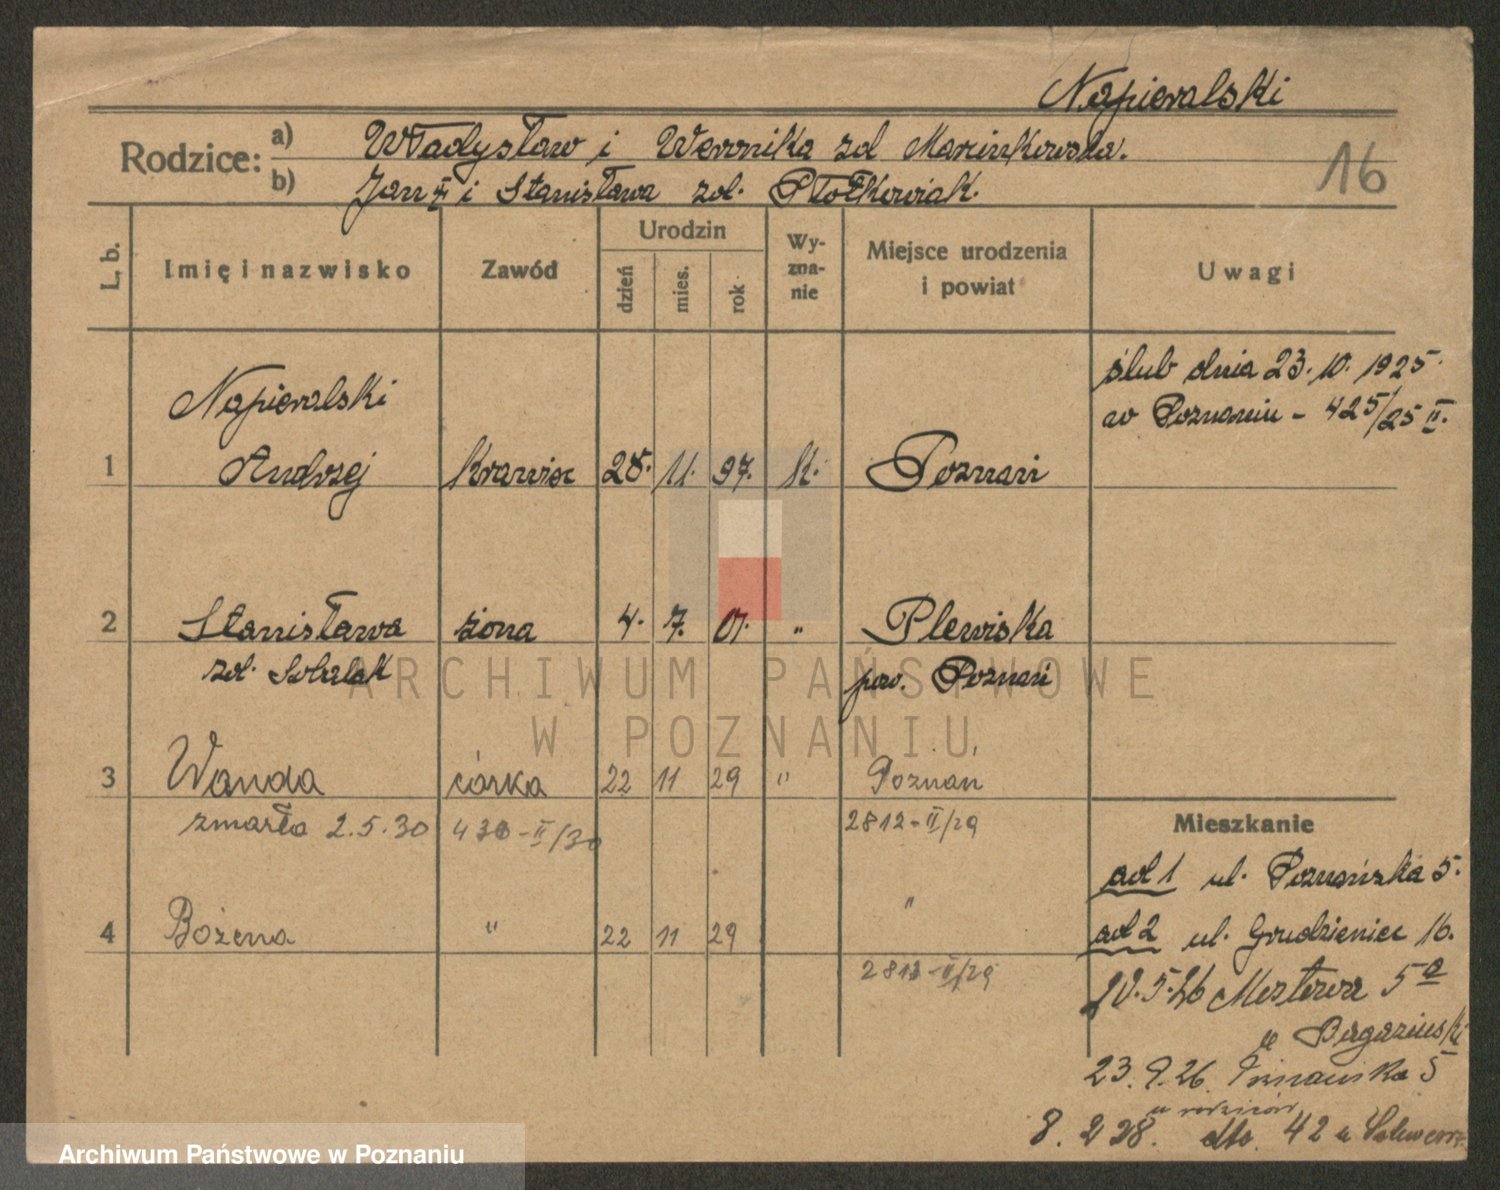 Napieralski
Rodzice: a) Władysław i Weronika zd Marcinkowska.
b) Jan i Stanisława zd. Ptołkowiak.
16
L. b. Imię i nazwisko Zawód Urodzin dzień mies. rok Wy-zna-nie Miejsce urodzenia i powiat Uwagi
ślub dnia 23.10.1925.
w Poznaniu - 425/25 II.
Napieralski
1 Andrzej krawiec 28. 11. 97. k. Poznań
2 Stanisława żona 4. 7. 01. " Plewiska
zd. pow. Poznań
ARCHIWUM PAŃSTWOWE
W POZNANIU
3 Wanda córka 22 11 29 " Poznań
zmarła 2.5.30 430-II/30 2812-II/29
Mieszkanie
ad 1 ul. Poznańska 5.
4 Bożena " 22 11 29 "
ad 2 ul. Grudzieniec 16.
2813-II/29
20.5.26 Mostowa 5a
u
23.9.26. Poznańska 5
u rodziców
8. 2 28. dto. 42 u
Archiwum Państwowe w Poznaniu